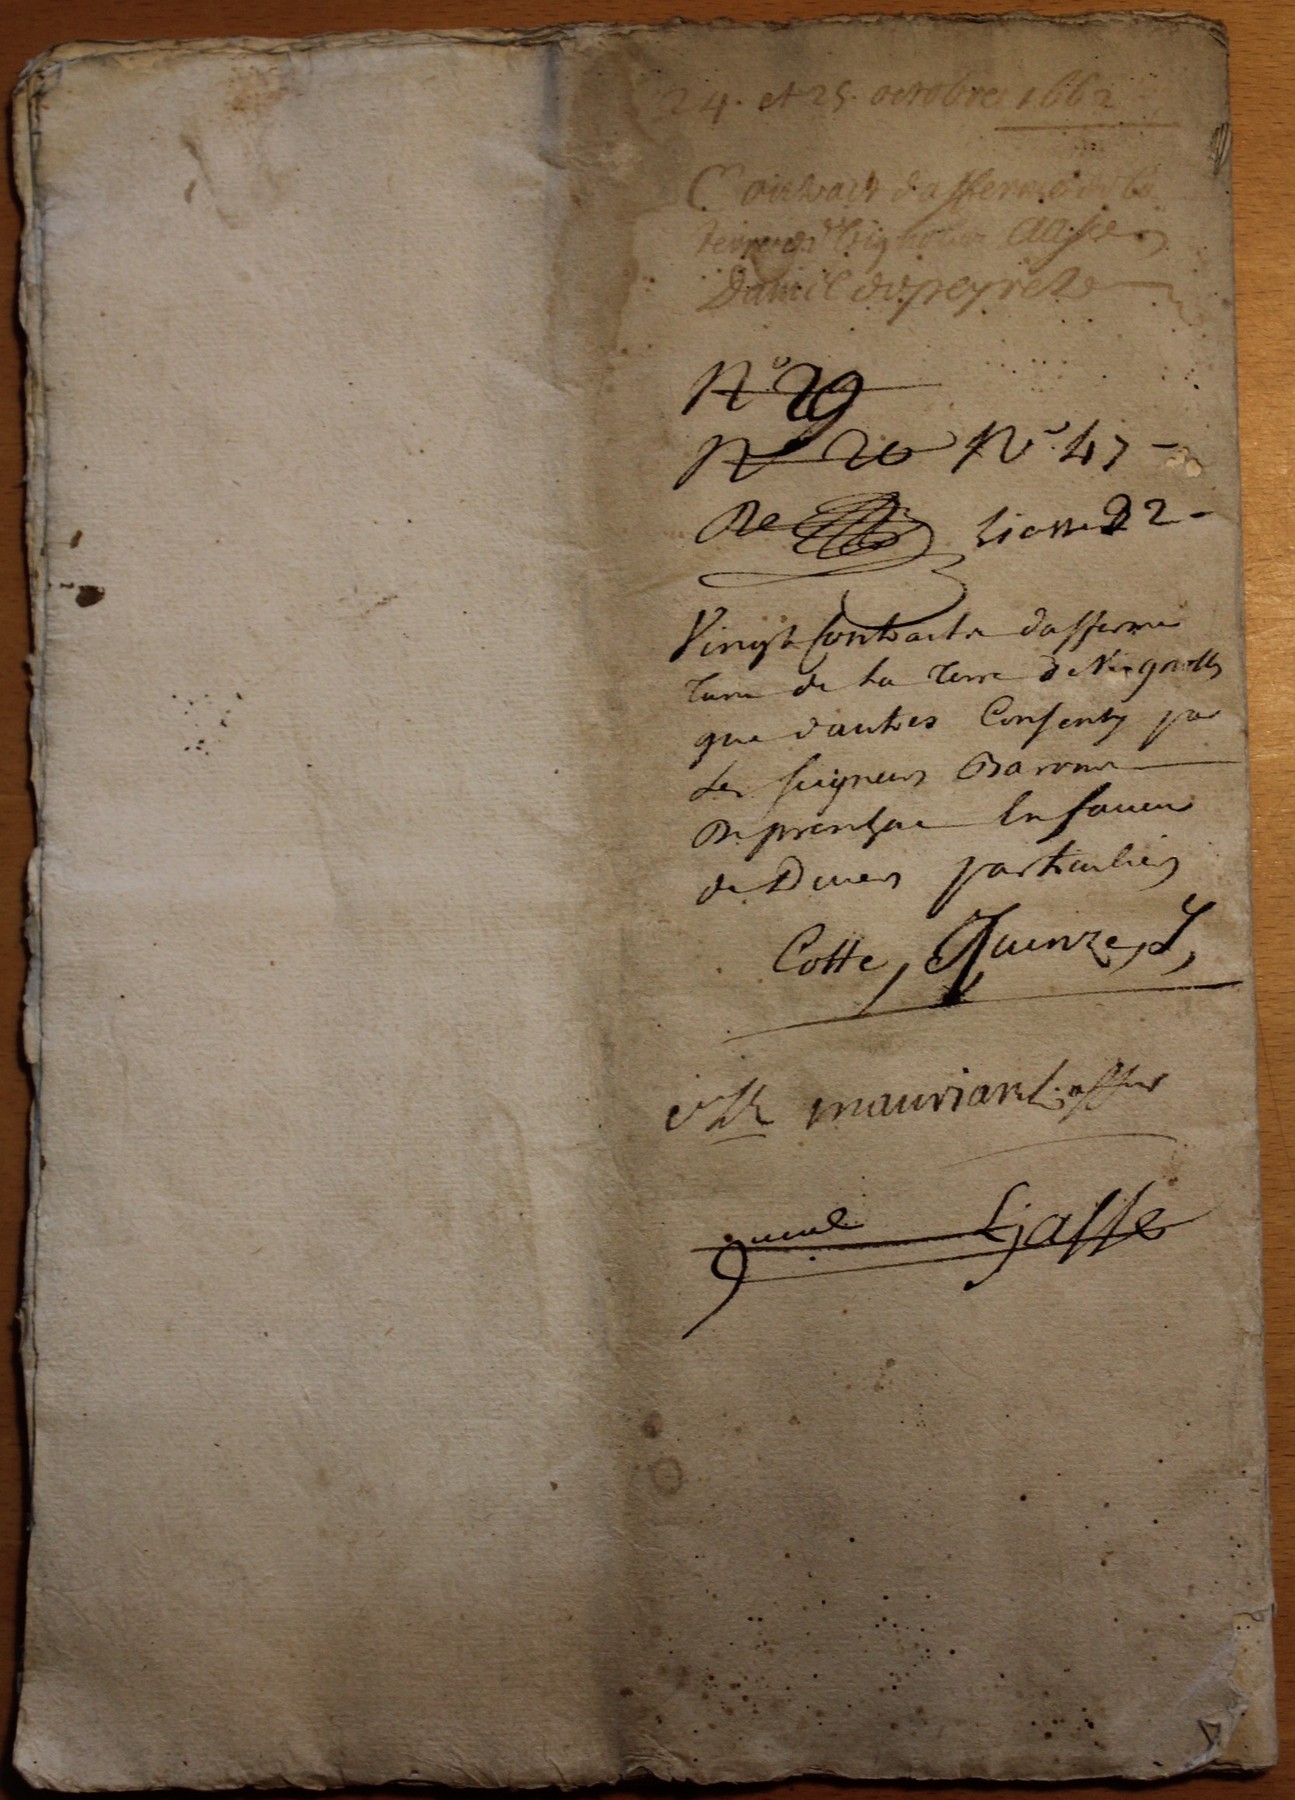 24. et 25. octobre 1662
Contract d'afferme de la
terre de Vignolles
Daniel dupeyrat
N° 29
N° 20 N° 47
De Liasse 22
Vingt Contracts dafferme
tant de la terre de Vignolles
que dautres Consenty par
Les seigneurs Barons
De preissac En faveur
de Divers particuliers
Cotte, Quinze, J,
mauriant
Liasse